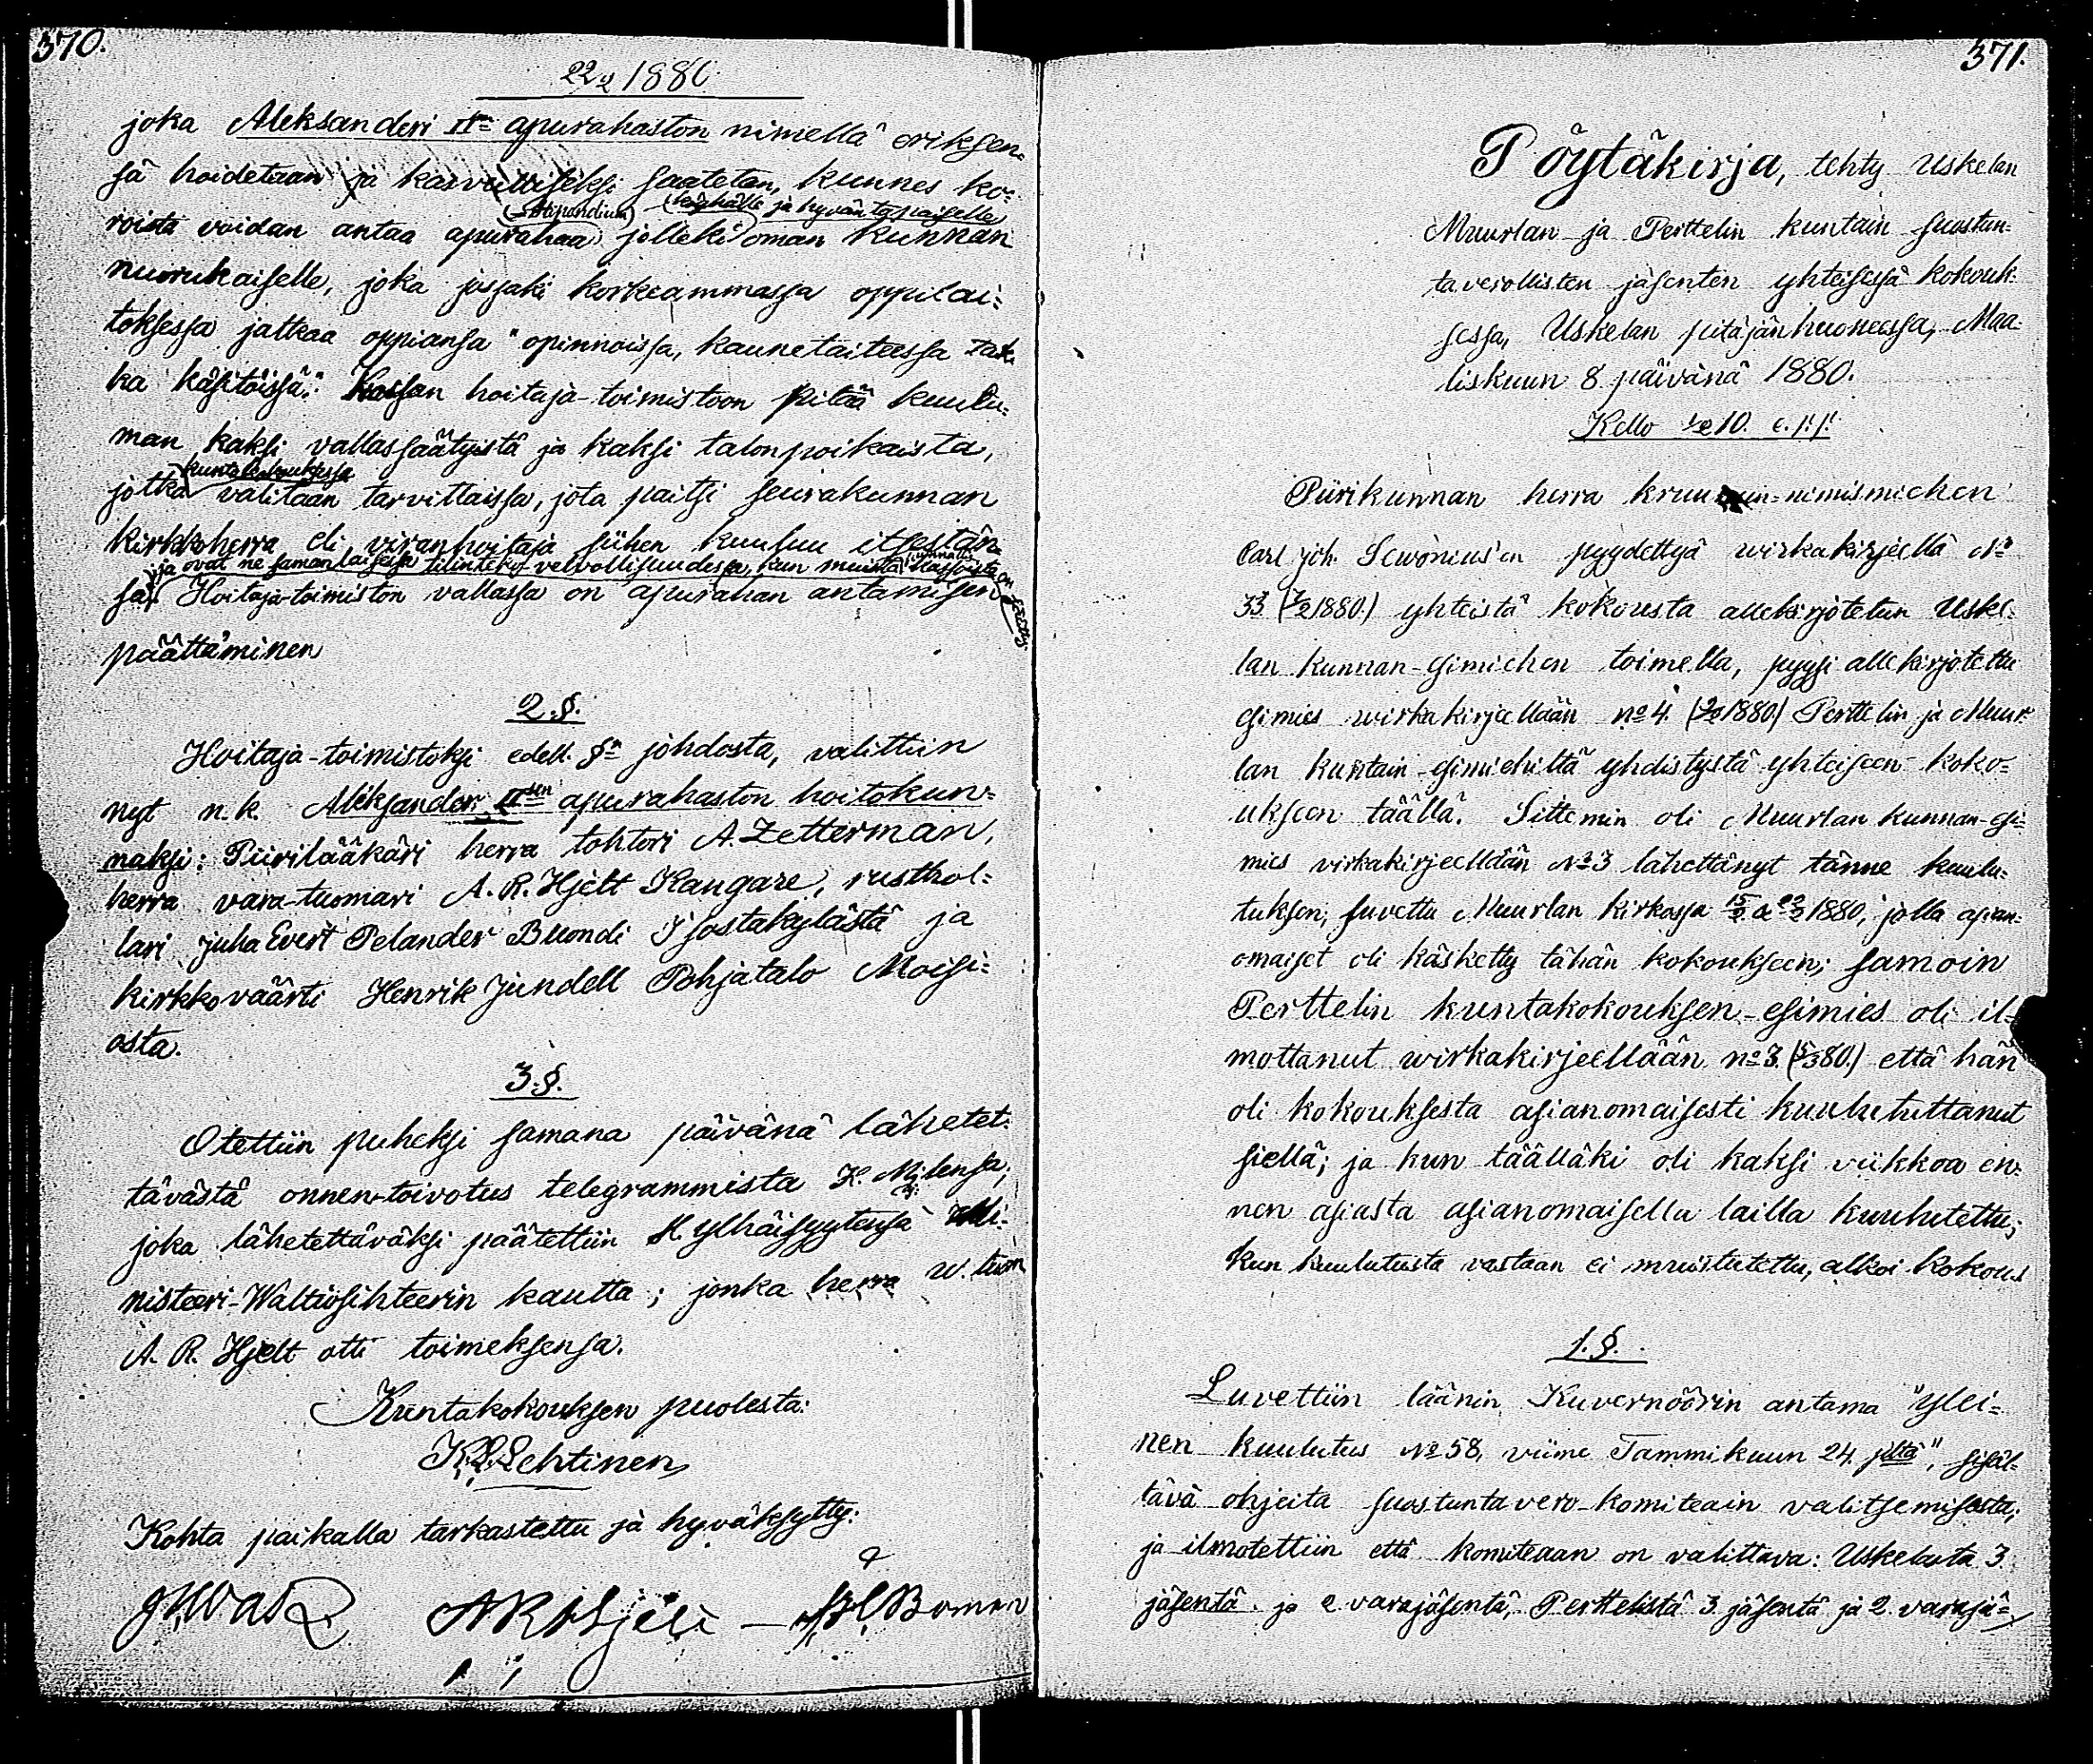 370.
22/2 1880.
joka Aleksanderi II:n apurahaston nimellä eriksen-
sä hoidetaan ja kasvulliseksi saatetan, kunnes ko-
roista voidan antaa apurahaa (Stipendium) jolleki köyhälle ja hyväntapaiselle oman kunnan
nuorukaiselle, joka jossaki korkeammassa oppilai-
toksessa jatkaa oppiansa "opinnoissa, kaunetaiteessa tah-
ka käsitöissä." Kassan hoitaja-toimistoon pitää kuulu-
man kaksi vallassäätyistä ja kaksi talonpoikaista,
jotka kuntakokouksessa valitaan tarvittaissa, jota paitsi seurakunnan
kirkkoherra eli viranhoitaja siihen kuuluu itsestän-
sä, ja ovat ne samanlaisessa tilinteko-velvollisuudessa, kun muista kunnan kassoista on säätty.
Hoitaja-toimiston vallassa on apurahan antamisen
päättäminen
2.§.
Hoitaja-toimistoksi edell. §:n johdosta, valittiin
nyt n.k. Aleksanderi II:sen apurahaston hoitokun-
naksi: Piirilääkäri herra tohtori A. Zetterman,
herra vara-tuomari A. R. Hjelt Kangare, rusthol-
lari Juha Evert Pelander Buondi Isostakylästä ja
kirkkoväärti Henrik Jundell Pohjatalo Moisi-
osta.
3.§.
Otettiin puheksi samana päivänä lähetet-
tävästä onnen-toivotus telegrammista K. M:llensa,
joka lähetettäväksi päätettiin H. ylhäisyytensä Mi-
nisteeri-Waltiosihteerin kautta; jonka herra w. tuom
A. R. Hjelt otti toimeksensa.
Kuntakokouksen puolesta:
K. L. Lehtinen
Kohta paikalla tarkastettu ja hyväksytty:
A R Hjelt
371.
Pöytäkirja, tehty Uskelan
Muurlan ja Perttelin kuntain suostun-
taverollisten jäsenten yhteisessä kokouk-
sessa, Uskelan pitäjänhuoneessa, Maa-
liskuun 8 päivänä 1880.
Kello 1/2 10. e. p. p.
Piirikunnan herra kruunun-nimismiehen
Carl Joh. Sewonius'en pyydettyä wirkakirjeellä N:o
33 (7/2 1880.) yhteistä kokousta allekirjotetun Uske-
lan kunnan-esimiehen toimella, pyysi allekirjotettu
esimies wirkakirjeellään No 4. (1880.) Perttelin ja Muur-
lan kuntain-esimiehiltä yhdistystä yhteiseen koko-
ukseen täällä. Sittemin oli Muurlan kunnan-esi-
mies virkakirjeellään No 3 lähettänyt tänne kuulu-
tuksen, luvettu Muurlan kirkossa 15/2 a 22/2 1880, jolla asian-
omaiset oli käsketty tähän kokoukseen; samoin
Perttelin kuntakokouksen-esimies oli il-
mottanut wirkakirjeellään No 3. (5/3 80.) että hän
oli kokouksesta asianomaisesti kuuluttuttanut
siellä; ja kun täälläki oli kaksi viikkoa en-
nen asiasta asianomaisella lailla kuulutettu;
kun kuulutusta vastaan ei muistutettu, alkoi kokous
1.§.
Luvettiin läänin Kuvernöörin antama "ylei-
nen kuulutus No 58, viime Tammikuun 24. p:ltä", sisäl-
tävä ohjeita suostuntavero-komiteain valitsemisesta;
ja ilmotettiin että komiteaan on valittava: Uskelasta 3
jäsentä ja 2 varajäsentä, Perttelistä 3 jäsentä ja 2 varajä-